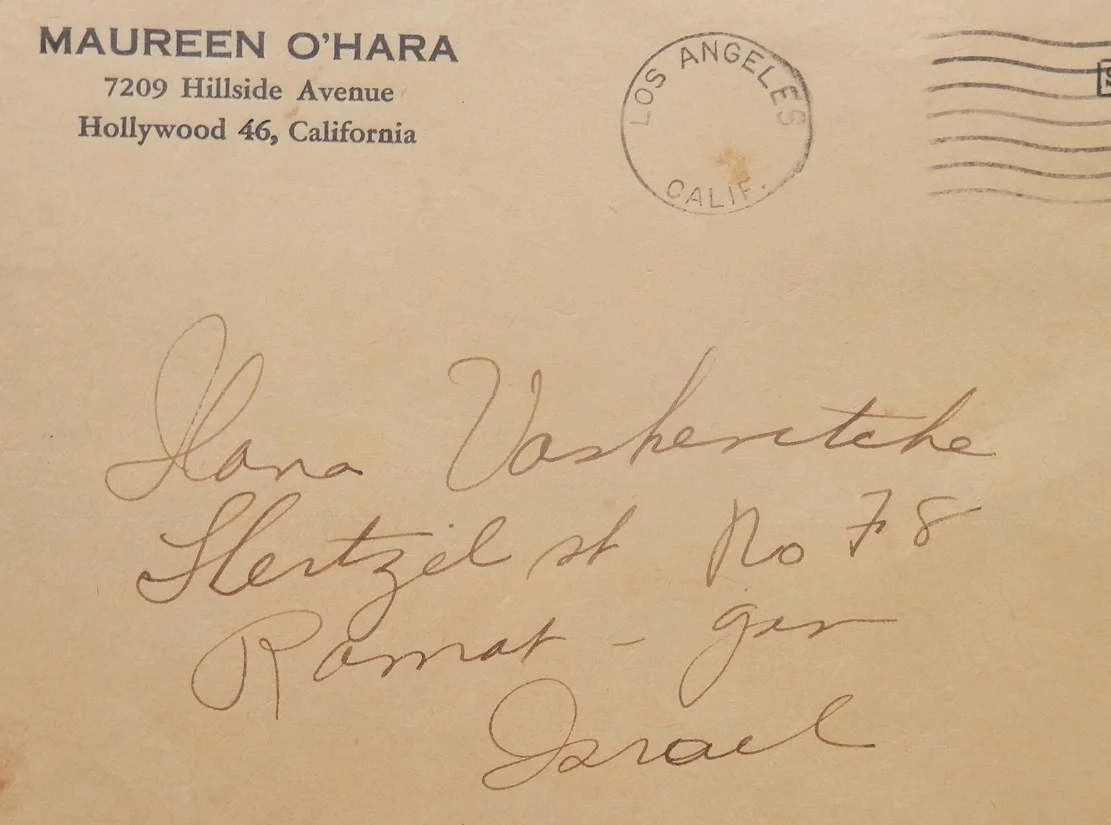 MAUREEN O'HARA
7209 Hillside Avenue
Hollywood 46, California
LOS ANGELES
CALIF.
Ilana Vasheritche
Hertzel st No 78
Ramat - gan
Israel